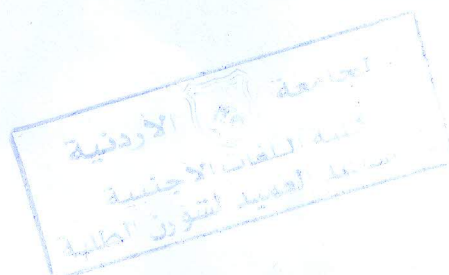 الجامعة الأردنية
كلية اللغات الاجنبية
مساعد العميد لشؤون الطلبة